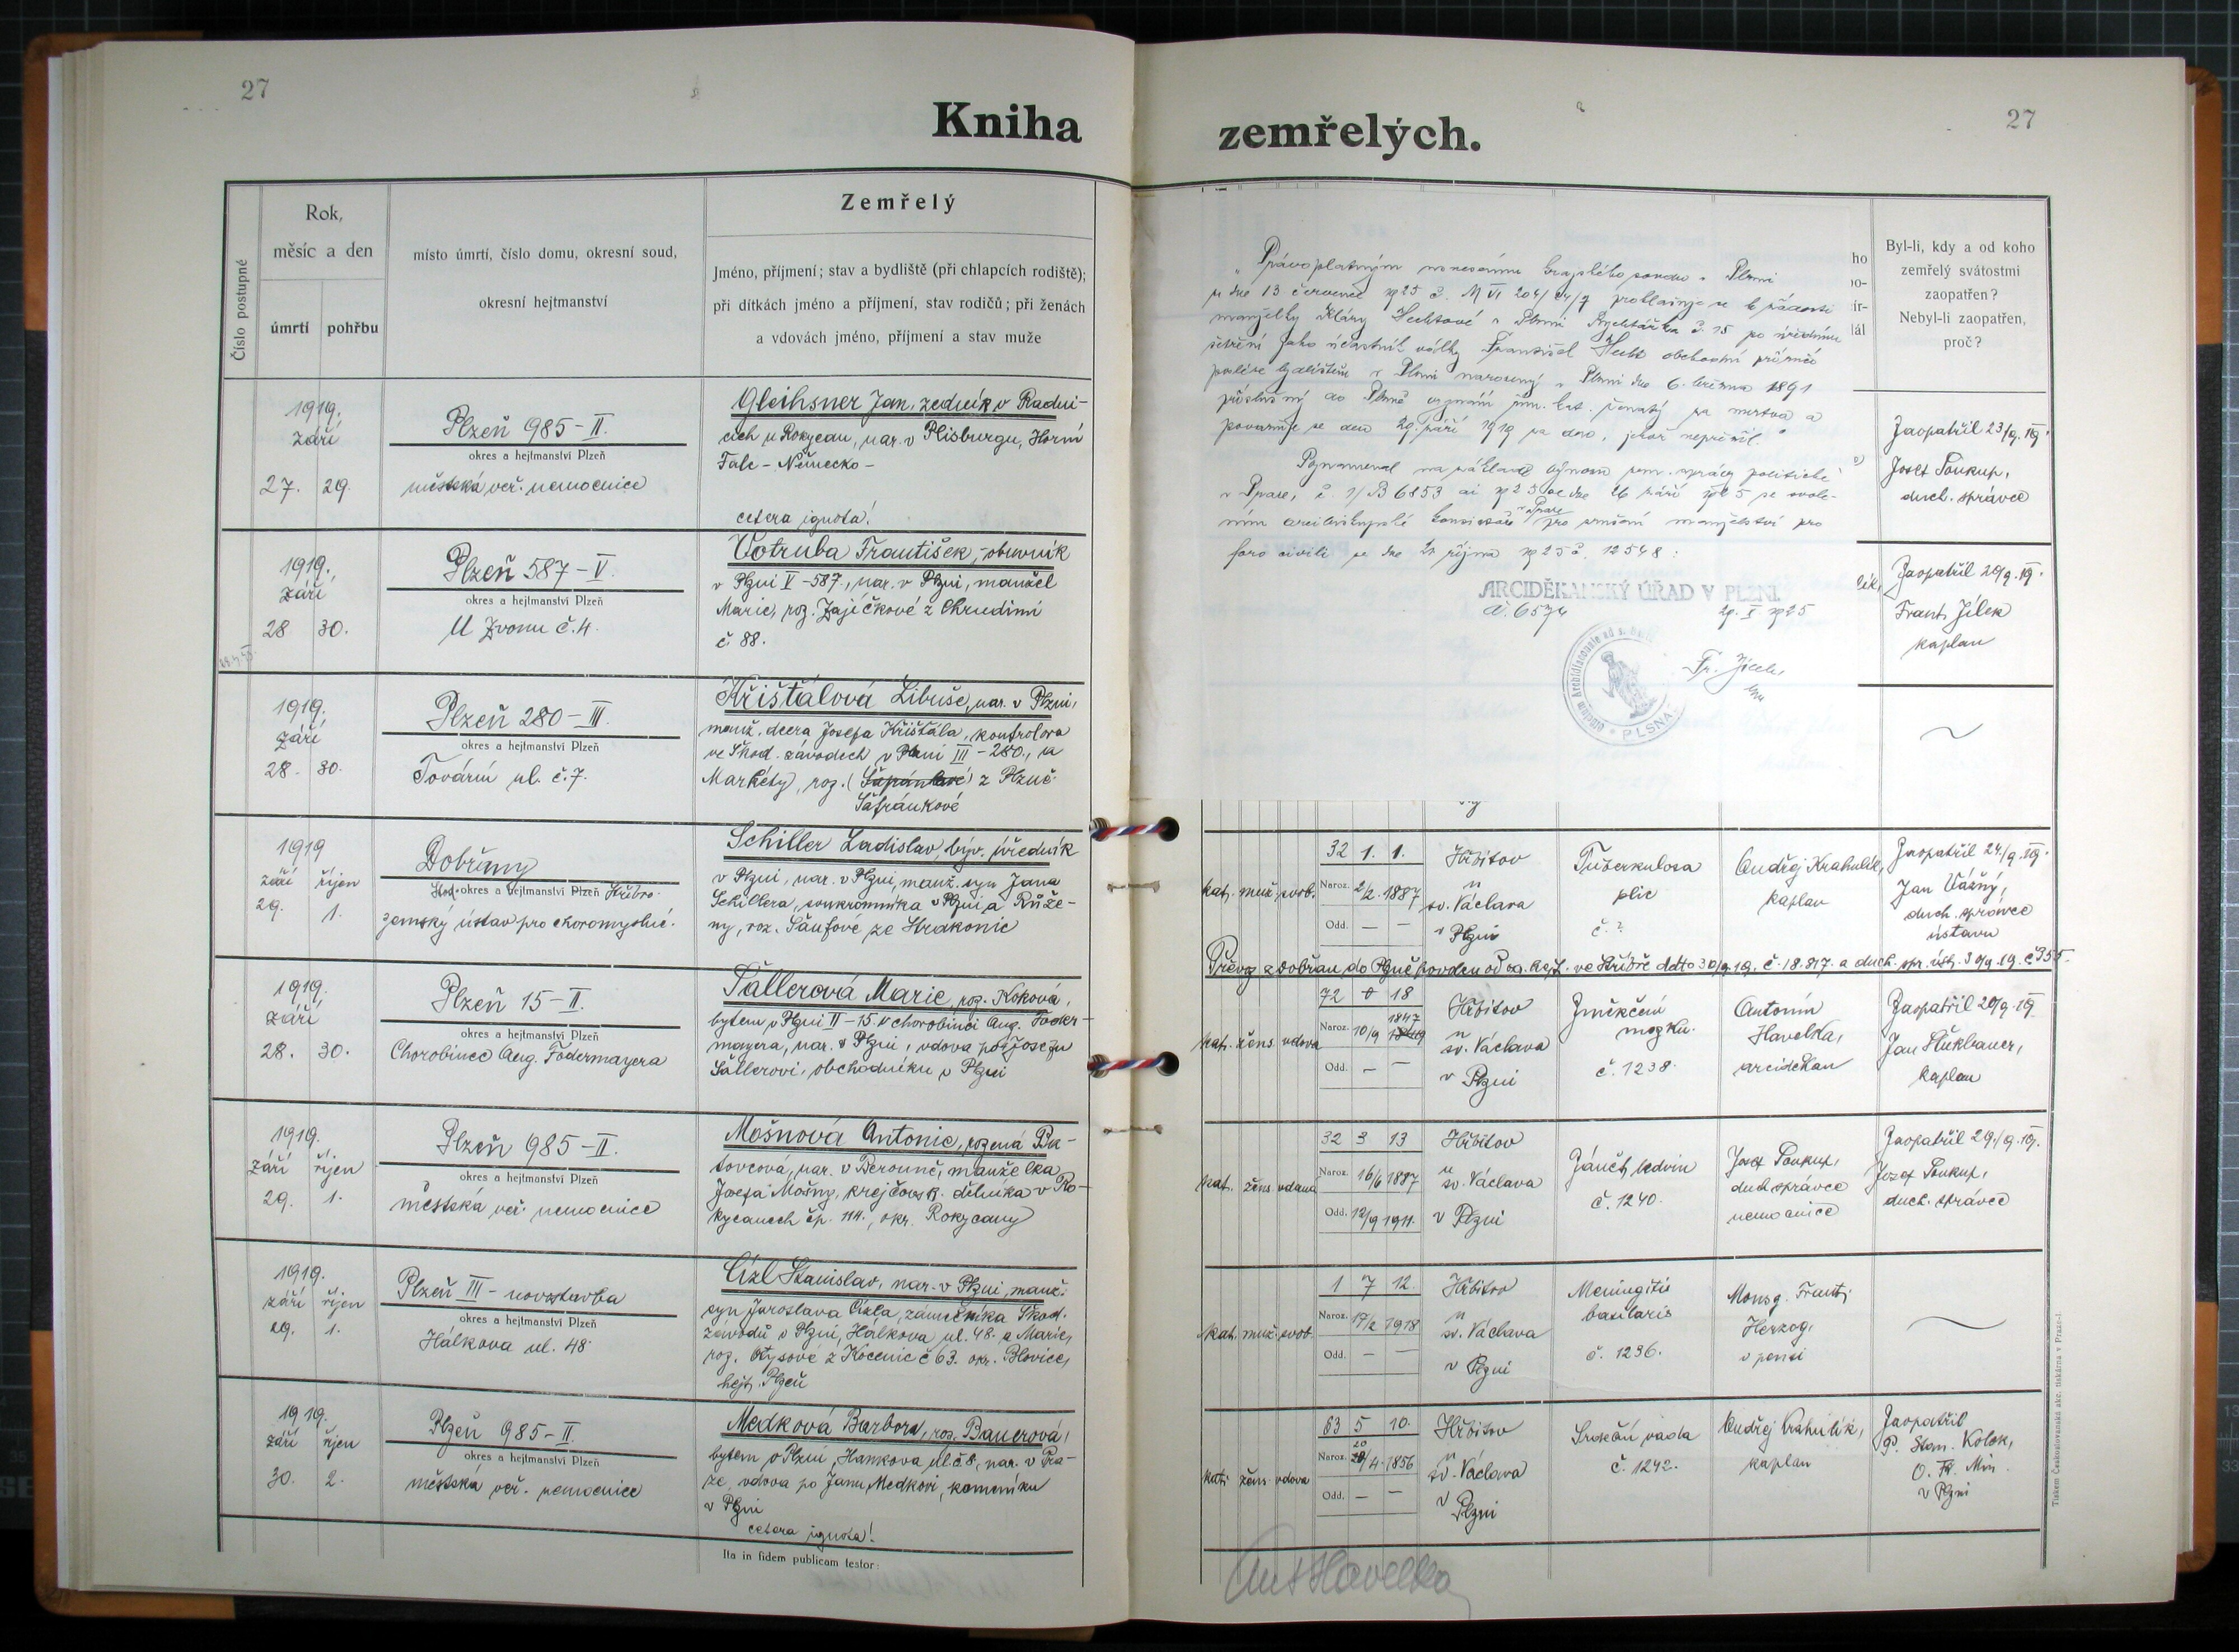 27
Kniha
Číslo postupné
Rok,
měsíc a den
úmrtí
pohřbu
místo úmrtí, číslo domu, okresní soud,
okresní hejtmanství
Zemřelý
Jméno, příjmení; stav a bydliště (při chlapcích rodiště);
při dítkách jméno a příjmení, stav rodičů; při ženách
a vdovách jméno, příjmení a stav muže
1919.
září
27. 29.
Plzeň 985-II.
okres a hejtmanství Plzeň
městská veř. nemocnice
Gleihsner Jan, zedník v Radni-
cích u Rokycan, nar. v Plisburgu, Horní
Falc - Německo -
cetera ignota!
1919.
září
28 30.
Plzeň 587-V.
okres a hejtmanství Plzeň
U Zvonu č. 4.
Votruba František, obuvník
v Plzni V-587., nar. v Plzni, manžel
Marie, roz. Zajíčkové z Chrudimi
č 88.
1919.
září
28. 30.
Plzeň 280-III.
okres a hejtmanství Plzeň
Tovární ul. č. 7.
Křišťálová Libuše, nar. v Plzni,
manž. dcera Josefa Křišťála, kontrolora
ve Škod. závodech v Plzni III-280., a
Markéty, roz. z Plzně.
Šafránkové
1919
září říjen
29. 1.
Dobřany
okres a hejtmanství Plzeň Stříbro
zemský ústav pro choromyslné.
Schiller Ladislav, býv. úředník
v Plzni, nar. v Plzni, manž. syn Jana
Schillera, soukromníka v Plzni a Růže-
ny, roz. Šaufové ze Strakonic
1919.
září
28. 30.
Plzeň 15-II.
okres a hejtmanství Plzeň
Chorobinec Aug. Födermayera
Šallerová Marie, roz. Koková,
bytem v Plzni II-15 v chorobinci Aug. Föder-
mayera, nar. v Plzni, vdova po Josefu
Šallerovi, obchodníku v Plzni
1919.
září říjen
29. 1.
Plzeň 985-II.
okres a hejtmanství Plzeň
městská veř. nemocnice
Mošnová Antonie, rozená
nar. v Berouně, manželka
Josefa Mošny, krejčovsk. dělníka v Ro-
kycanech čp. 114., okr. Rokycany
1919.
září říjen
29. 1.
Plzeň III - novostavba
okres a hejtmanství Plzeň
Hálkova ul. 48.
Cízl Stanislav, nar. v Plzni, manž.
syn Jaroslava Cízla, zámečníka Škod.
závodů v Plzni, Hálkova ul. 48. a Marie,
roz. z Kocenic č 63. okr. Blovice,
hejt. Plzeň
1919.
září říjen
30. 2.
Plzeň 985-II.
okres a hejtmanství Plzeň
městská veř. nemocnice
Medková Barbora, roz. Bauerová,
bytem v Plzni, Hankova ul. č 8, nar. v Pra-
ze, vdova po Janu Medkovi, kameníku
v Plzni
cetera ignota!
Ita in fidem publicam testor:
27
zemřelých.
Byl-li, kdy a od koho
zemřelý svátostmi
zaopatřen?
Nebyl-li zaopatřen,
proč?
"Právoplatným usnesením krajského soudu v Plzni
ze dne 13 července 1925 č. prohlašuje se k žádosti
manželky Kláry Hechtové v Plzni Rychtářka č. 15 po úředním
šetření jako účastník války František Hecht obchodní příručí
posléze bydlištěm v Plzni narozený v Plzni dne 6. března 1891
příslušný do Plzně vyznání řím. kat. ženatý za mrtva a
považuje se den 29. září 1919 za den, jehož nepřežil."
Poznamenal na základě výnosu zem. správy politické
v Praze, č. 6853 ai 1925 ze dne 26 září 1925 se svole-
ním arcibiskupské konsistoře v Praze pro zrušení manželství pro
foro civili ze dne října 1925 č. 12548:
ARCIDĚKANSKÝ ÚŘAD V PLZNI.
č. 6574 29. X 1925
PLSNA
Zaopatřil 23/9. 19.
Josef Soukup,
duch. správce
Zaopatřil 20/9. 19.
Frant. Jílek
kaplan
kat. muž. svob.
32 1. 1.
Naroz. 2/2. 1887
Odd. — —
Hřbitov
u
sv. Václava
v Plzni
Tuberkulosa
plic
č. ?
Ondřej Krahulík,
kaplan
Zaopatřil 24/9. 19.
Jan Vážný,
duch. správce
ústavu
Převoz z Dobřan do Plzně povolen od ve Stříbře ddto 30/9. 19. č. 18.817. a duch. spr. úst. 30/9. 19. č 355.
kat. žens. vdova
72 0 18
Naroz. 10/9 1847
Odd. — —
Hřbitov
u
sv. Václava
v Plzni
Změkčení
mozku.
č. 1238.
Antonín
Havelka,
arciděkan
Zaopatřil 20/9. 19.
Jan
kaplan
kat. žens. vdaná
32 3 13
Naroz. 16/6 1887
Odd. 12/9 1911.
Hřbitov
u
sv. Václava
v Plzni
Zánět ledvin
č. 1240.
Josef Soukup,
duch. správce
nemocnice
Zaopatřil 29/9. 19.
Josef Soukup,
duch. správce
kat. muž. svob.
1 7 12.
Naroz. 17/2 1918
Odd. — —
Hřbitov
u
sv. Václava
v Plzni
Meningitis
basilaris
č. 1236.
Monsg. Frant.
Herzog,
v pensi
kat. žens. vdova
63 5 10.
Naroz. 20/4. 1856
Odd. — —
Hřbitov
u
sv. Václava
v
Plzni
Srdeční vada
č. 1242.
Ondřej Krahulík,
kaplan
Zaopatřil
P. Stan. Kolek,
O. Fr. Min.
v Plzni
Ant Havelka
Tiskem Českoslovanské akc. tiskárna v Praze-I.